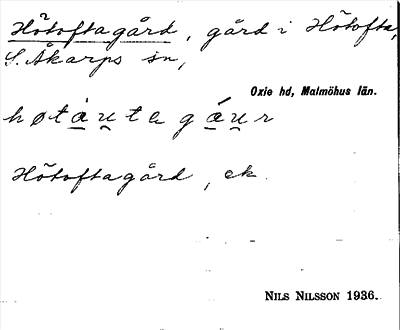 Hötoftagård, gård i Hötofta,
S. Åkarps sn,
Oxie hd, Malmöhus län.
høtàu̯ta gáu̯r
Hötoftagård, ek.
NILS NILSSON 1936.